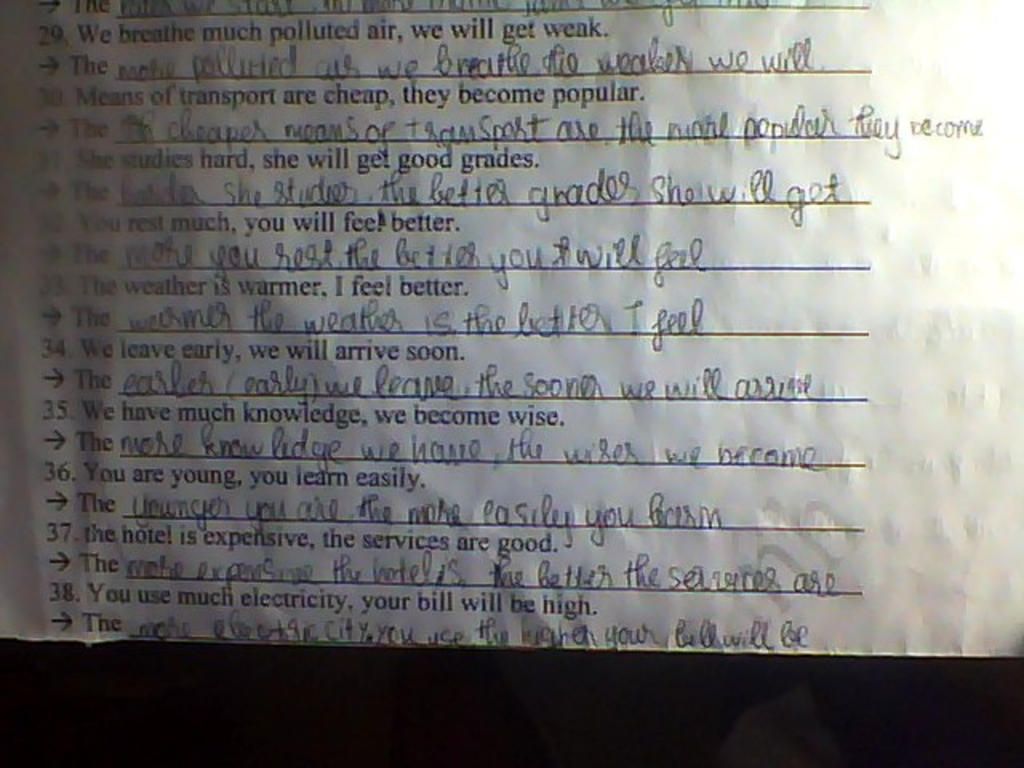 → The
29. We breathe much polluted air, we will get weak.
→ The more polluted air we breathe the weaker we will
30. Means of transport are cheap, they become popular.
→ The cheaper means of transport are the more popular they become
31. She studies hard, she will get good grades.
→ The harder she studies, the better grades she will get
32. You rest much, you will feel better.
→ The more you rest, the better you will feel
33. The weather is warmer, I feel better.
→ The warmer the weather is the better I feel
34. We leave early, we will arrive soon.
→ The earlier (early) we leave, the sooner we will arrive
35. We have much knowledge, we become wise.
→ The more knowledge we have, the wiser we become
36. You are young, you learn easily.
→ The younger you are the more easily you learn
37. the hotel is expensive, the services are good.
→ The more expensive the hotel is the better the services are
38. You use much electricity, your bill will be high.
→ The more electricity you use the higher your bill will be